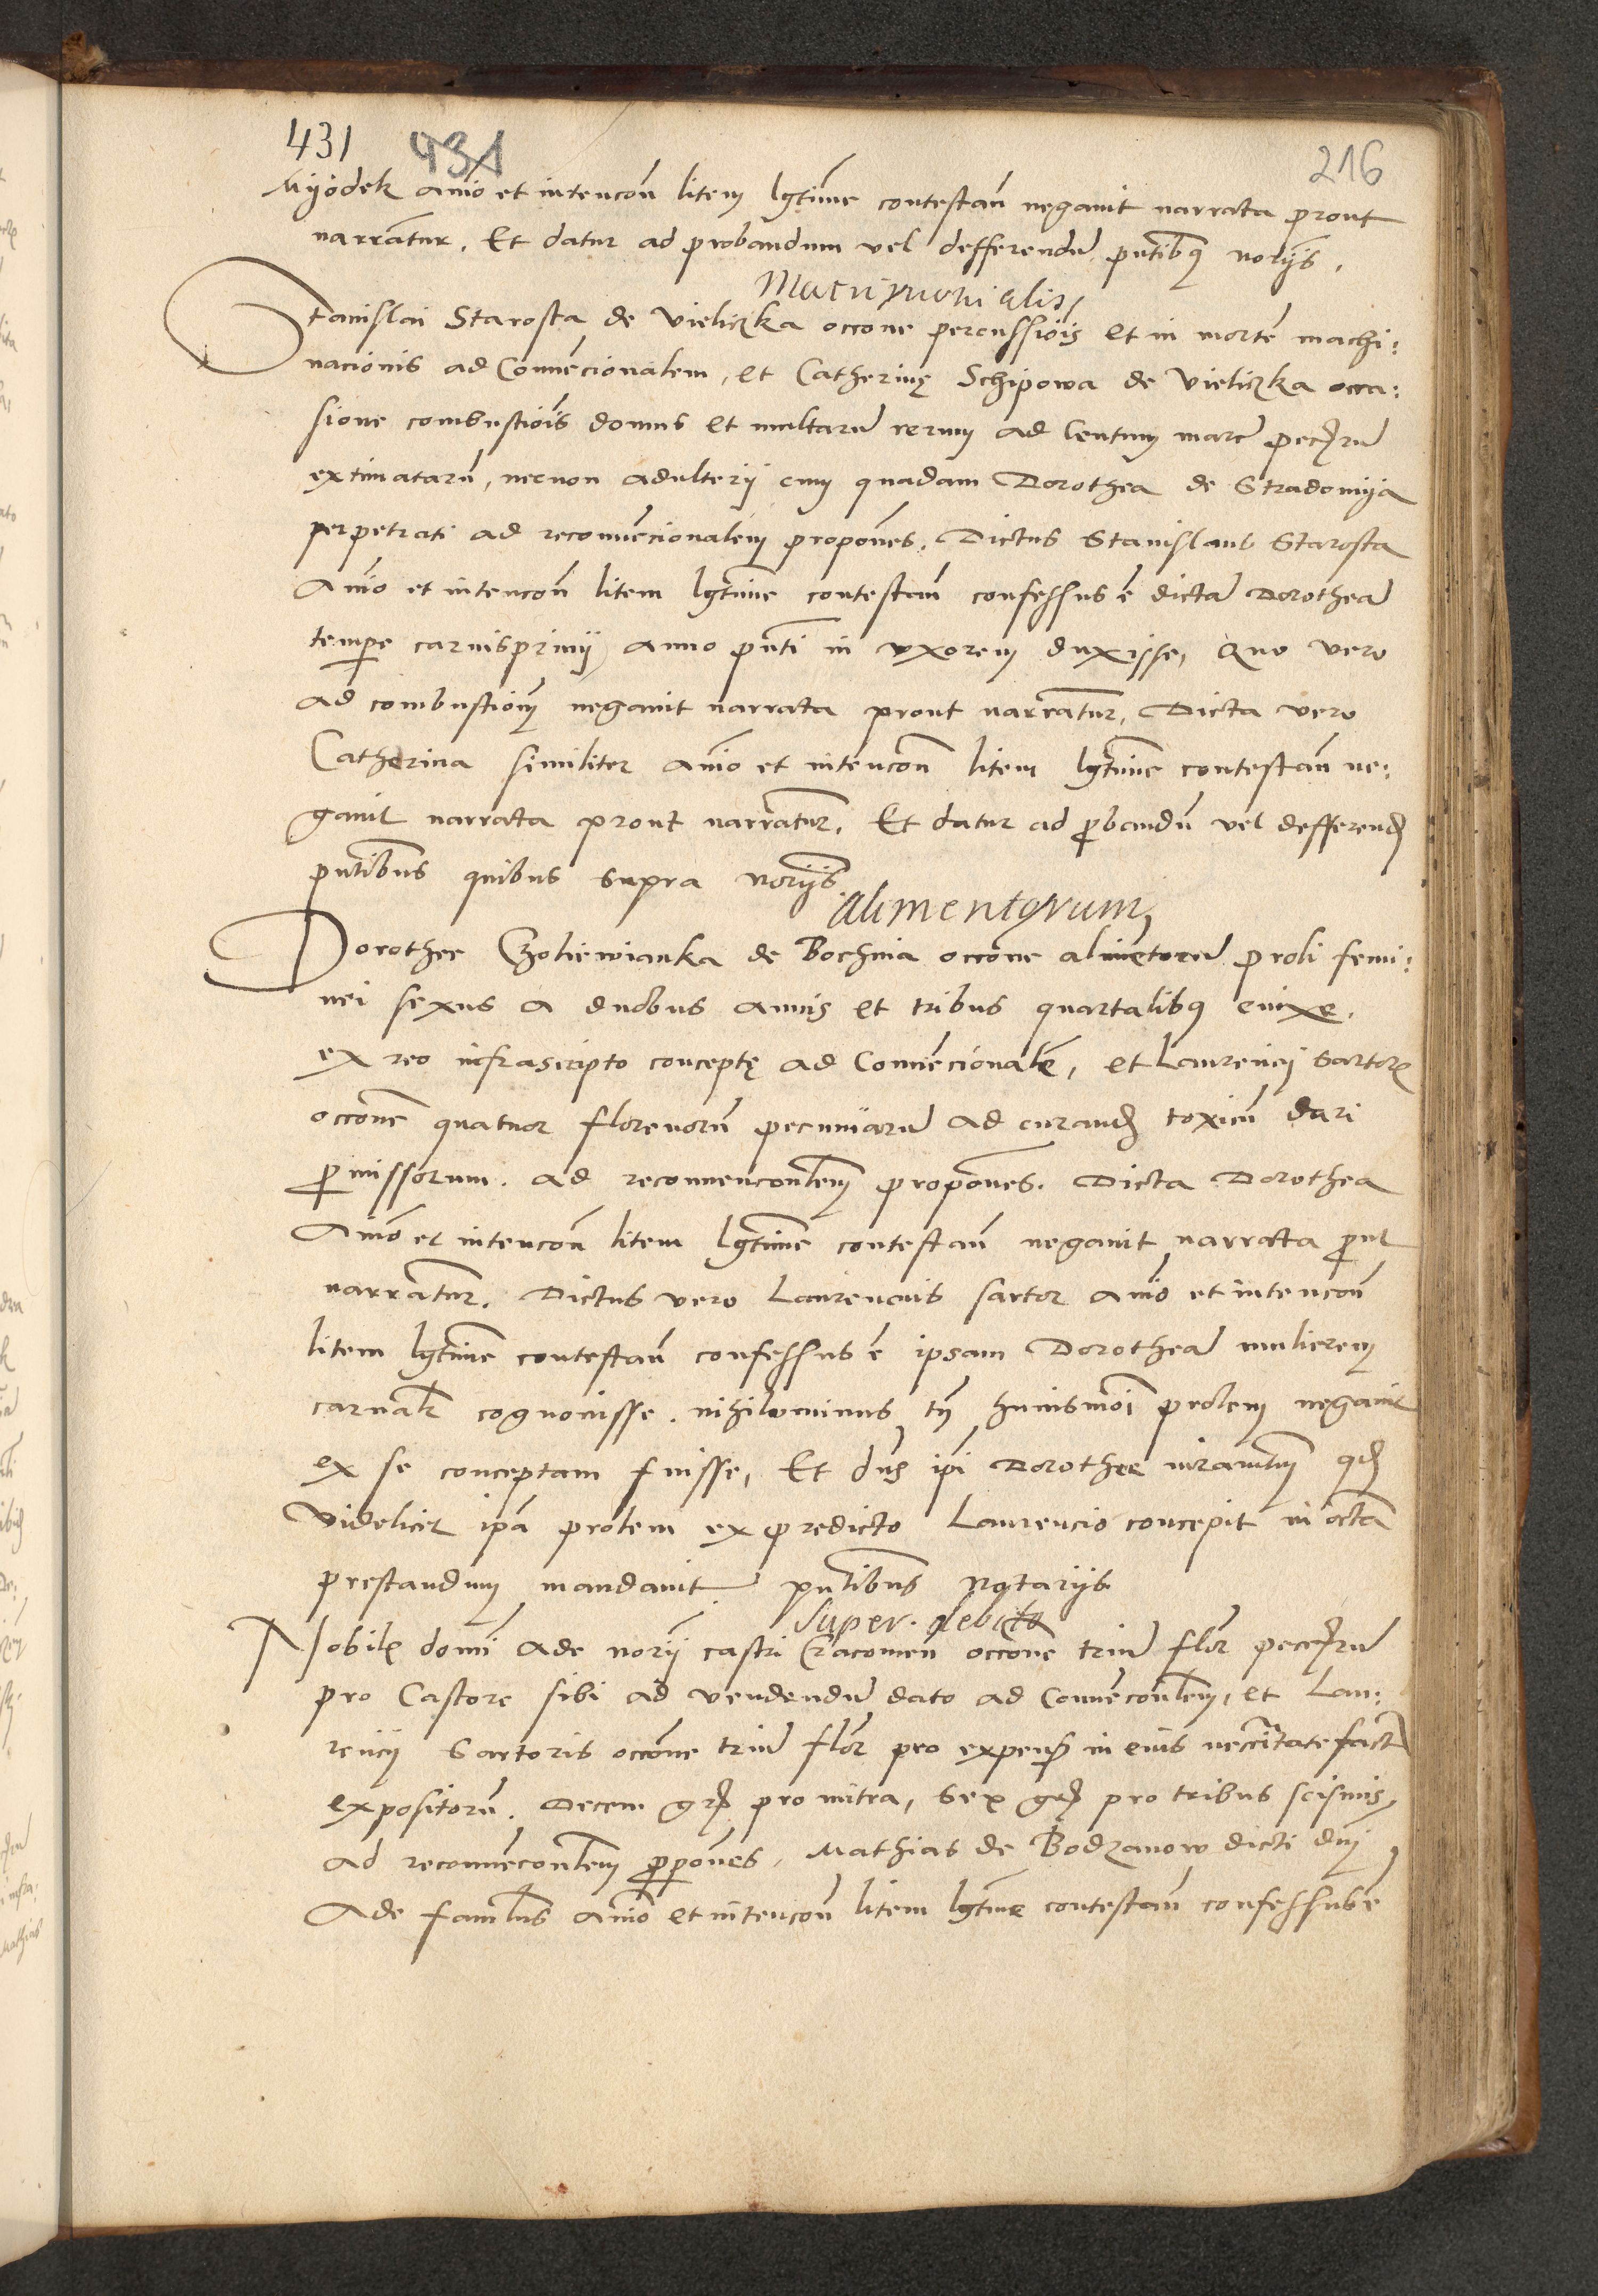 431 431 216
Myodek animo et intencoñ litem lgtime contestañ negauit narrata prout
narrantur. Et datur ad probandum vel defferendũ pñtibus notȷ̃js.
Matrimonialis
Stanislai Starosta de vieliczka occone percussiõis et in mortẽ machi:
nacionis ad Conuẽcionalem, et Catherinę Schipowa de vieliczka occa:
sione combustiõis domus et multarũ rerum ad Centum marc̃ pecȷ̃rũ
extimatarũ, necnon adulterij cum quadam Dorothea de Stradomija
perpetrati ad reconuẽcionalem propoñes. Dictus Stanislaus Starosta
añio et intencoñ litem lgtime contestañ confessus ẽ dictã Dorotheã
tempore carnispriuij anno pñti in vxorem duxisse, Quo vero
ad combustionẽ negauit narrata prout narrantur, Dicta vero
Catherina similiter añio et intencoñ litem lgtime contestañ ne:
gauit narrata prout narrantur. Et datur ad probandũ vel defferend
pñtibus quibus supra notȷ̃js
Alimentorum
Dorothee Czoliewianka de Bochnia occone alimẽtorũ proli femi:
nei sexus a duobus annis et tribus quartalibus enixe.
ex reo infrascripto conceptę ad Conuẽcionalẽ, et Laurencij Sartoris
occone quatuor florenorũ pecuniarũ ad curand toxicũ dari
promissorum. ad reconuenconlem propoñes. Dicta Dorothea
añio et intencoñ litem lgtime contestañ negauit narrata prout
narrantur. Dictus vero Laurencius sartor añio et intencoñ
litem lgtime contestañ confessus ẽ ipsam Dorotheã mulierem
carnalr cognouisse. nihilominus tñ huiusmõi prolem negauit
ex se conceptam fuisse, Et dñs ipi Dorothee iuramtum qd
videlicet ipã prolem ex predicto Laurencio concepit in octa
prestandum mandauit pñtibus notarijs
Super debito
Nobilis domi Ade notȷ̃j castri Cracouieñ occone triũ flor pecȷ̃rũ
pro Castore sibi ad vendendũ dato ad Conuẽconlem, et Lau:
rencij Sartoris occone triũ flor pro expeñ in eius necc̃itate fact
expositorũ. Decem gr pro mitra, Sex gr pro tribus scismis,
ad reconuẽconlem propoñes. Mathias de Bodzanow dicti dñi
Ade famlus añio et intencoñ litem lgtime contestañ confessus ẽ